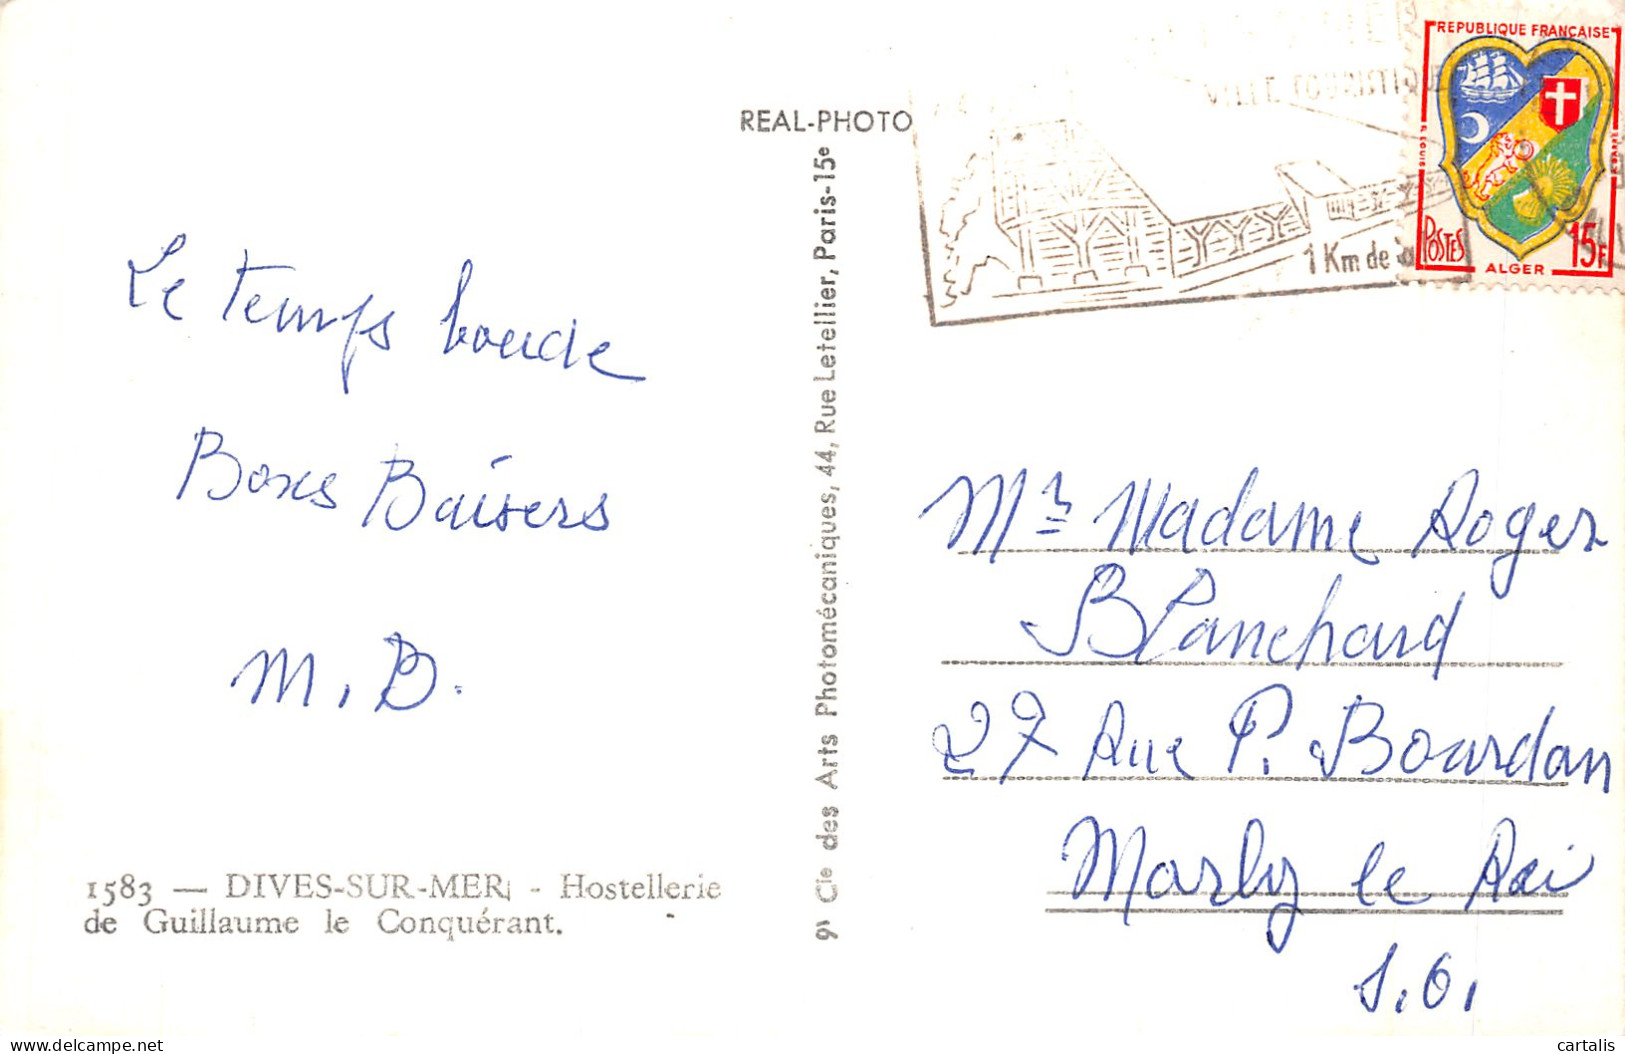 Le temps boude
Bons Baisers
M. B.
1583 — DIVES-SUR-MER - Hostellerie
de Guillaume le Conquérant.
REAL-PHOTO
Cie des Arts Photomécaniques, 44, Rue Letellier, Paris-15e
VILLE TOURISTIQUE
1 Km de
REPUBLIQUE FRANÇAISE
POSTES
15F
ALGER
Mr Madame Roger
Blanchard
27 Rue P. Bourdan
Marly le Roi
S. O.
delcampe.net
cartalis